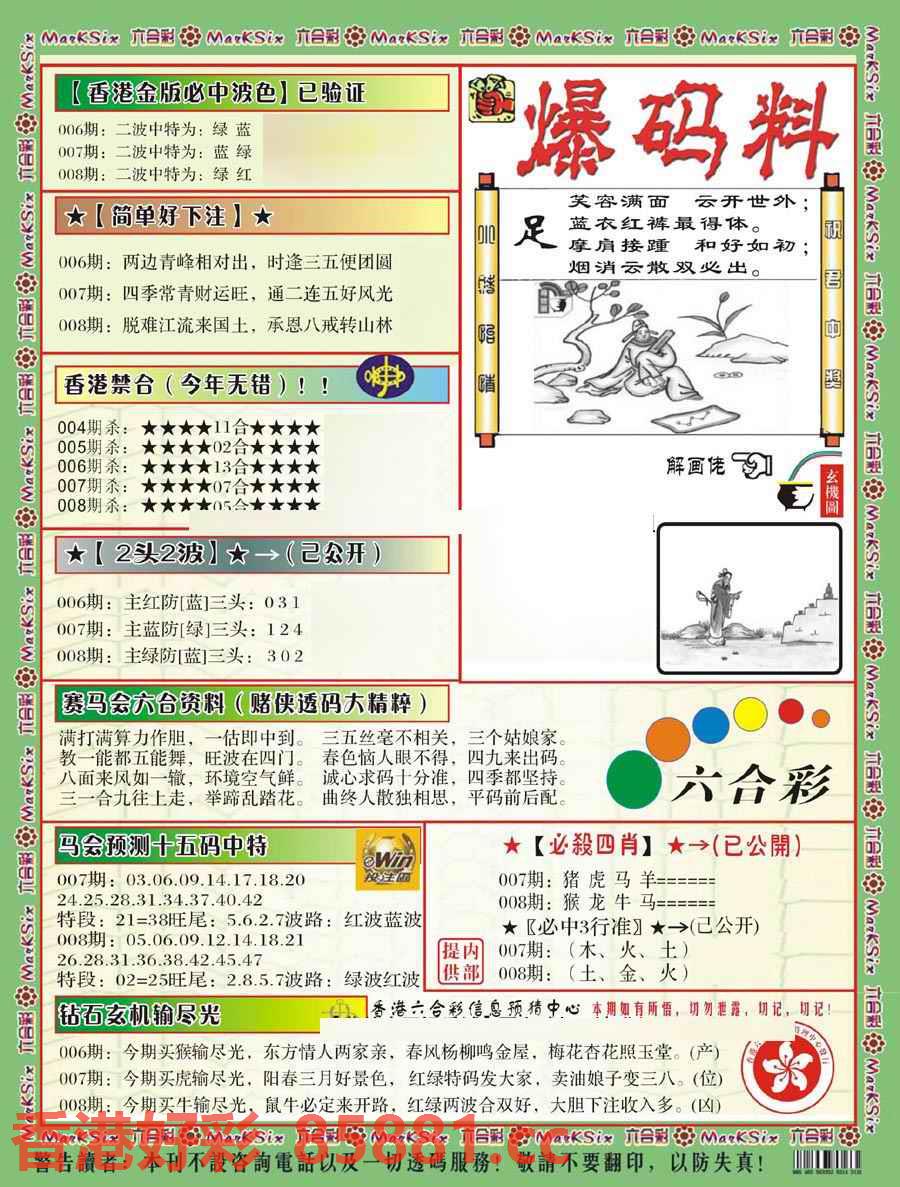 MarKSix 六合彩 MarKSix 六合彩 MarKSix 六合彩 MarKSix 六合彩 MarKSix 六合彩
【香港金版必中波色】已验证
006期：二波中特为：绿 蓝
007期：二波中特为：蓝 绿
008期：二波中特为：绿 红
★【简单好下注】★
006期：两边青峰相对出，时逢三五便团圆
007期：四季常青财运旺，通二连五好风光
008期：脱难江流来国土，承恩八戒转山林
香港禁合（今年无错）！！
004期杀：★★★★11合★★★★
005期杀：★★★★02合★★★★
006期杀：★★★★13合★★★★
007期杀：★★★★07合★★★★
008期杀：★★★★05合★★★★
★【2头2波】★→（已公开）
006期：主红防[蓝]三头：031
007期：主蓝防[绿]三头：124
008期：主绿防[蓝]三头：302
爆码料
足
笑容满面 云开世外；
蓝衣红裤最得体。
摩肩接踵 和好如初；
烟消云散双必出。
祝君中奖
解画佬
玄機圖
赛马会六合资料（赌侠透码大精粹）
满打满算力作胆，一估即中到。 三五丝毫不相关，三个姑娘家。
教一能都五能舞，旺波在四门。 春色恼人眼不得，四九来出码。
八面来风如一辙，环境空气鲜。 诚心求码十分准，四季都坚持。
三一合九往上走，举蹄乱踏花。 曲终人散独相思，平码前后配。
六合彩
马会预测十五码中特
eWin
投注區
007期：03.06.09.14.17.18.20
24.25.28.31.34.37.40.42
特段：21=38旺尾：5.6.2.7波路：红波蓝波
008期：05.06.09.12.14.18.21
26.28.31.36.38.42.45.47
特段：02=25旺尾：2.8.5.7波路：绿波红波
★【必殺四肖】★→(已公開)
007期：猪 虎 马 羊======
008期：猴 龙 牛 马======
★〖必中3行准〗★→(已公开)
007期：（木、火、土）
008期：（土、金、火）
内部提供
钻石玄机输尽光
香港六合彩信息预猜中心 本期如有所悟，切勿泄露，切记，切记！
006期：今期买猴输尽光，东方情人两家亲，春风杨柳鸣金屋，梅花杏花照玉堂。(产)
007期：今期买虎输尽光，阳春三月好景色，红绿特码发大家，卖油娘子变三八。(位)
008期：今期买牛输尽光，鼠牛必定来开路，红绿两波合双好，大胆下注收入多。(凶)
香港好彩 85881.cc
MarKSix 六合彩 MarKSix 六合彩 MarKSix 六合彩 MarKSix 六合彩 MarKSix 六合彩
警告讀者：本刊不設咨詢電話以及一切透碼服務！敬請不要翻印，以防失真！